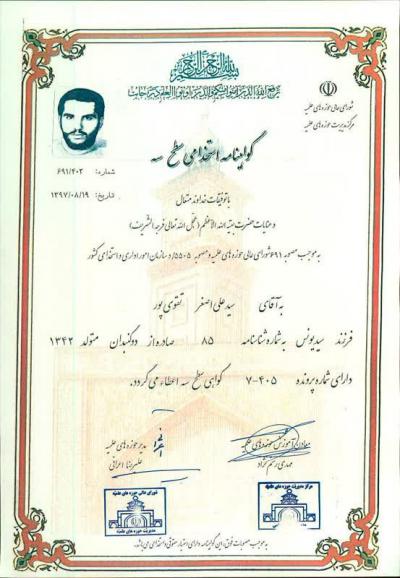 بسم الله الرحمن الرحیم
یرفع الله الذین آمنوا منکم والذین اوتوا العلم درجات
شورای عالی حوزه های علمیه
مرکز مدیریت حوزه های علمیه
گواهینامه استخدامی سطح سه
شماره: ۶۹۱/۴۰۲
تاریخ: ۱۳۹۷/۰۸/۱۹
با توفیقات خداوند متعال
و عنایات حضرت بقیه الله الاعظم (عجل الله تعالی فرجه الشریف)
به موجب مصوبه ۶۹۱ شورای عالی حوزه های علمیه و مصوبه ۵۵۰۵/د سازمان امور اداری و استخدامی کشور
به آقای سید علی اصغر تقوی پور
فرزند سید یونس به شماره شناسنامه ۸۵ صادره از دوگنبدان متولد ۱۳۴۲
دارای شماره پرونده ۷-۴۰۵ گواهی سطح سه اعطاء می گردد.
معاون آموزش حوزه های علمیه
مهدی رستم نژاد
مدیر حوزه های علمیه
علیرضا اعرافی
مرکز مدیریت حوزه های علمیه
شورای عالی حوزه های علمیه
مدیریت حوزه های علمیه
به موجب مصوبات فوق، این گواهینامه دارای اعتبار حقوقی و استخدامی می باشد.